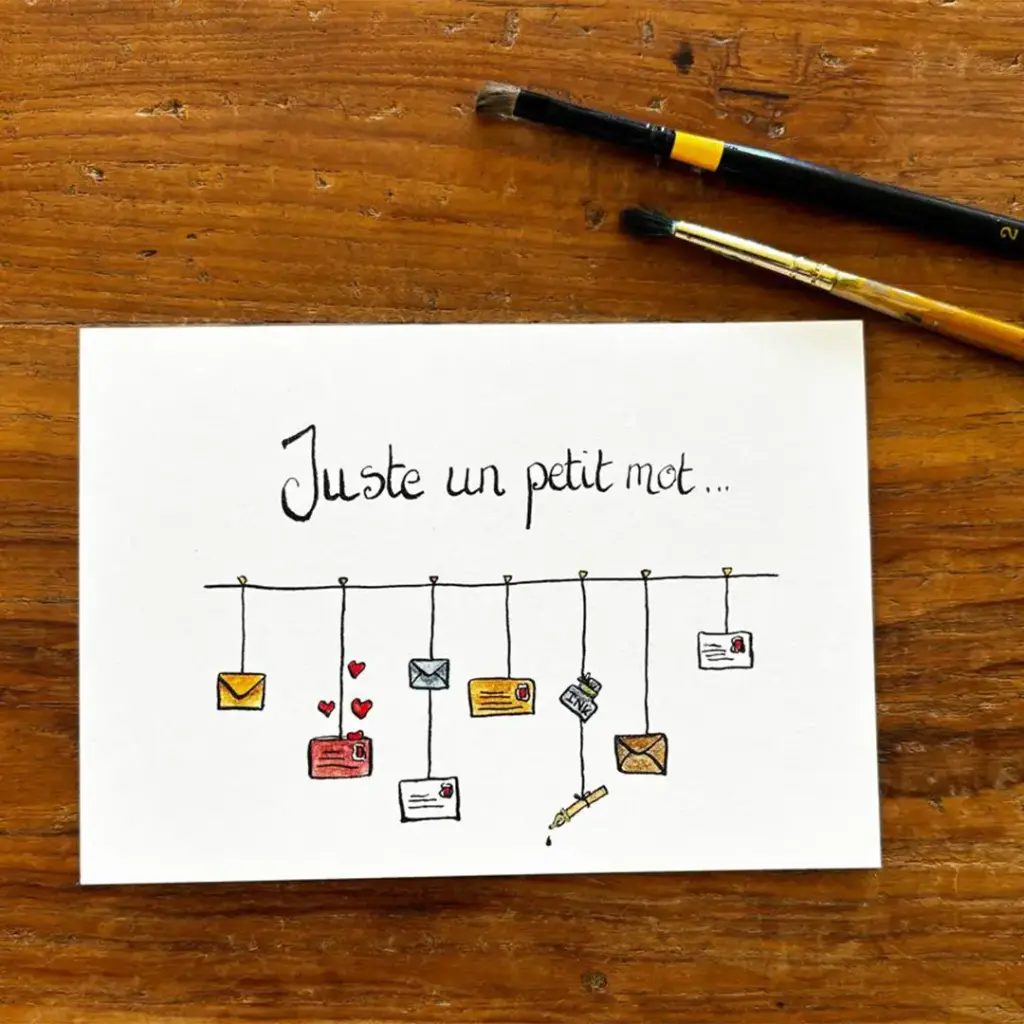 Juste un petit mot...
INK
2